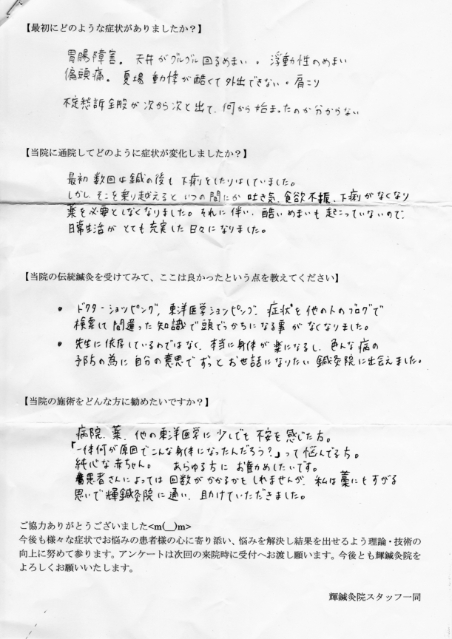 【最初にどのような症状がありましたか？】
胃腸障害。天井がグルグル回るめまい・浮動性のめまい
偏頭痛。夏場動悸が酷くて外出できない・肩こり
不定愁訴全般が次から次と出て、何から始まったのか分からない
【当院に通院してどのように症状が変化しましたか？】
最初数回は鍼の後も下痢をしたりはしていました。
しかしそこを乗り越えるといつの間にか吐き気、食欲不振、下痢がなくなり
薬を必要としなくなりました。それに伴い、酷いめまいも起こっていないので、
日常生活がとても充実した日々になりました。
【当院の伝統鍼灸を受けてみて、ここは良かったという点を教えてください】
• ドクターショッピング、東洋医学ショッピング、症状を他の人のブログで
検索して間違った知識で頭でっかちになる事がなくなりました。
• 先生に依存しているのではなく、本当に身体が楽になるし、色んな病の
予防の為に自分の意思でずっとお世話になりたい鍼灸院に出会えました。
【当院の施術をどんな方に勧めたいですか？】
病院、薬、他の東洋医学に少しでも不安を感じた方。
「一体何が原因でこんな身体になったんだろう？」って悩んでる方。
純心な赤ちゃん。あらゆる方にお薦めしたいです。
患者さんによっては回数がかかるかもしれませんが、私は藁にもすがる
思いで輝鍼灸院に通い、助けていただきました。
ご協力ありがとうございました<m(__)m>
今後も様々な症状でお悩みの患者様の心に寄り添い、悩みを解決し結果を出せるよう理論・技術の
向上に努めて参ります。アンケートは次回の来院時に受付へお渡し願います。今後とも輝鍼灸院を
よろしくお願いいたします。
輝鍼灸院スタッフ一同